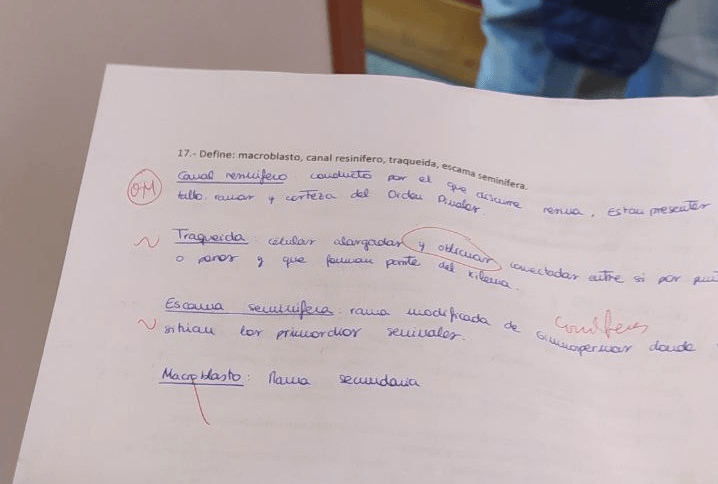 17.- Define: macroblasto, canal resinífero, traqueida, escama seminífera.
Canal resinífero conducto por el que discurre resina, Están presentes
tallo, ramas y corteza del Orden Pinales.
Traqueida: células alargadas y oblicuas conectadas entre sí por
o poros y que forman parte del xilema.
Coníferas
Escama seminífera: rama modificada de Gimnospermas donde
sitúan los primordios seminales.
Macroblasto: Rama secundaria